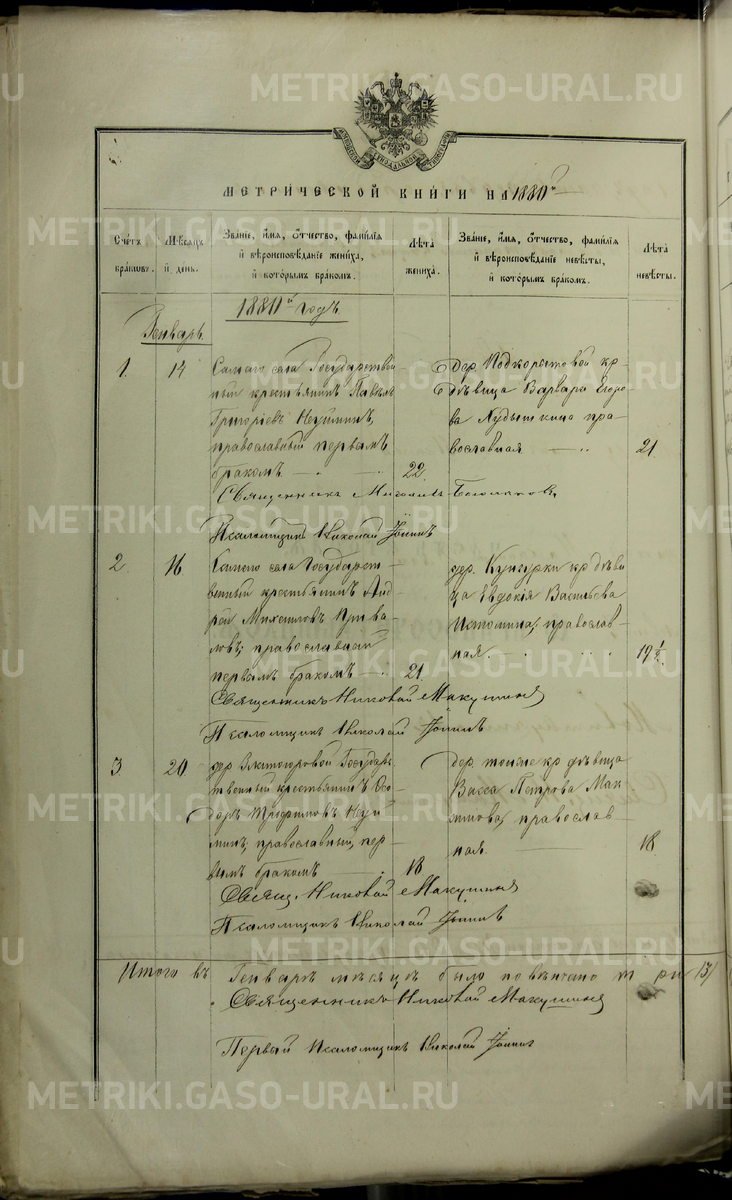 МЕТРИЧЕСКОЙ КНИГИ НА 1880й
Счетъ браковъ.
Мѣсяцъ и день.
Званіе, имя, отчество, фамилія и вѣроисповѣданіе жениха, и которымъ бракомъ.
Лѣта жениха.
Званіе, имя, отчество, фамилія и вѣроисповѣданіе невѣсты, и которымъ бракомъ.
Лѣта невѣсты.
1880й годъ.
Генварь
1. 14
Самаго села Государствен
ный крестьянинъ Павелъ
Григоріевъ Неуйминъ,
православный первымъ
бракомъ
22.
дер. Подкорытовой кр.
дѣвица Варвара Егоро-
ва Лудышкина пра-
вославная
21
Священникъ
Псаломщикъ Николай
2. 16
Самаго села Государст-
венный крестьянинъ Анд
рей Михеиловъ Прива-
ловъ, православный
первымъ бракомъ
21.
дер. Кунгурки кр дѣви
ца Евдокія Васильева
Истомина, православ-
ная.
19 ½.
Священникъ Николай Макушинъ
Псаломщикъ Николай
3. 20
дер. Государ
ственный крестьянинъ Ѳео-
доръ Трифоновъ Неуй
минъ, православный, пер-
вымъ бракомъ
18
дер. тоже кр дѣвица
Васса Петрова
православ-
ная.
18
Священ. Николай Макушинъ
Псаломщикъ Николай
Итого въ Генварѣ мѣсяцѣ было повѣнчано три (3)
Священникъ Николай Макушинъ
Первый Псаломщикъ Николай
METRIKI.GASO-URAL.RU